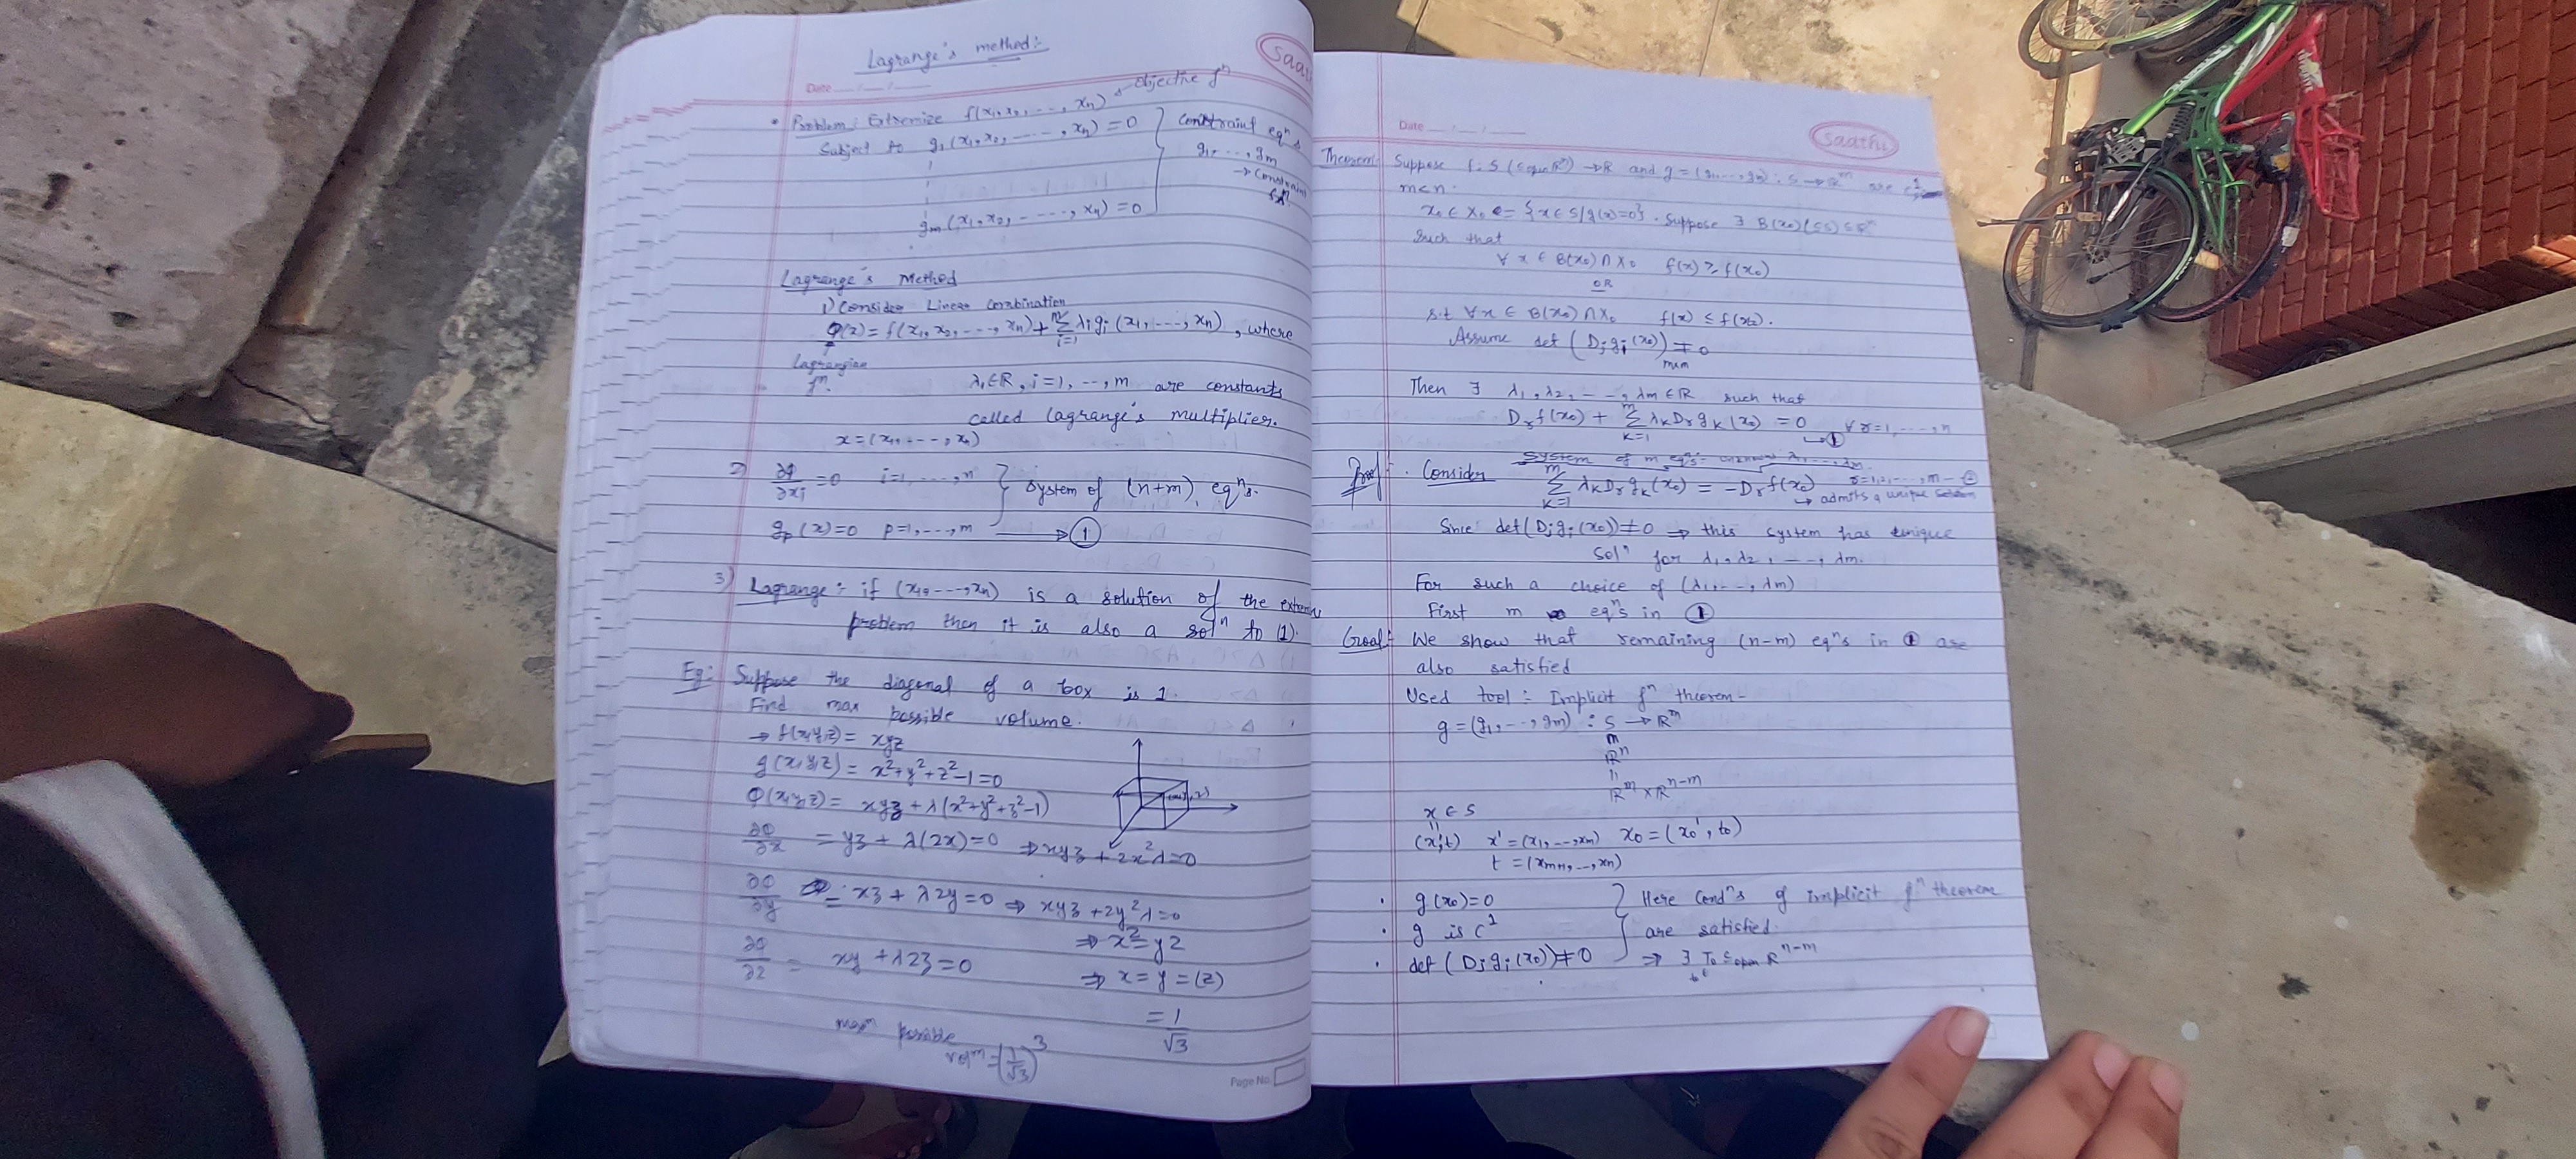 Date
Saa
Lagrange's method:-
• Problem: Extremize f(x₁, x₂, ..., xₙ) → objective fⁿ
Subject to g₁(x₁, x₂, ..., xₙ) = 0 } constraint eqⁿs
gₘ(x₁, x₂, ..., xₙ) = 0
g₁, ..., gₘ
→ constraint
Lagrange's Method
1) Consider Linear Combination
φ(x) = f(x₁, x₂, ..., xₙ) + Σᵢ₌₁ᵐ λᵢgᵢ(x₁, ..., xₙ), where
Lagrangian fⁿ.
λᵢ∈ℝ, i=1, .., m are constants
called lagrange's multiplier.
x = (x₁, ..., xₙ)
2) ∂φ/∂xᵢ = 0 i=1, ..., n } System of (n+m) eqⁿs.
gₚ(x) = 0 p=1, ..., m → ①
3) Lagrange:- if (x₁, ..., xₙ) is a solution of the extreme
problem then it is also a solⁿ to (1).
Eg:- Suppose the diagonal of a box is 1.
Find max possible volume.
→ f(x,y,z) = xyz
g(x,y,z) = x²+y²+z²-1=0
φ(x,y,z) = xyz + λ(x²+y²+z²-1)
∂φ/∂x = yz + λ(2x) = 0 ⇒ xyz + 2x²λ=0
∂φ/∂y = xz + λ2y = 0 ⇒ xyz + 2y²λ=0
⇒ x² = y²
∂φ/∂z = xy + λ2z = 0 ⇒ x = y = (z)
= 1/√3
maxᵐ possible volᵐ = (1/√3)³
Page No.
Date
Saathi
Theorem: Suppose f: S (⊆open ℝⁿ) → ℝ and g = (g₁, ..., gₘ): S → ℝᵐ are C¹
m<n.
x₀ ∈ X₀ = {x ∈ S / g(x)=0}. Suppose ∃ B(x₀) (⊆S) ⊆ ℝⁿ
Such that
∀ x ∈ B(x₀) ∩ X₀ f(x) ≥ f(x₀)
OR
s.t ∀ x ∈ B(x₀) ∩ X₀ f(x) ≤ f(x₀).
Assume det(Dⱼgᵢ(x₀))ₘₓₘ ≠ 0
Then ∃ λ₁, λ₂, ..., λₘ ∈ ℝ such that
Dᵣf(x₀) + Σₖ₌₁ᵐ λₖDᵣgₖ(x₀) = 0 ∀ r=1, ..., n
→ ①
Proof:- Consider System of m eqⁿs unknown λ₁, ..., λₘ.
Σₖ₌₁ᵐ λₖDᵣgₖ(x₀) = -Dᵣf(x₀) r=1,2, ..., m - ②
→ admits a unique solution
Since det(Dⱼgᵢ(x₀)) ≠ 0 ⇒ this system has unique
solⁿ for λ₁, λ₂, ..., λₘ.
For such a choice of (λ₁, ..., λₘ)
First m eqⁿs in ①
Goal:- We show that remaining (n-m) eqⁿs in ① are
also satisfied
Used tool:- Implicit fⁿ theorem-
g = (g₁, ..., gₘ) : S → ℝᵐ
ℝⁿ
ℝᵐ × ℝⁿ⁻ᵐ
x ∈ S
(x',t) x' = (x₁, ..., xₘ) x₀ = (x₀', t₀)
t = (xₘ₊₁, ..., xₙ)
• g(x₀) = 0 } Here condⁿs of implicit fⁿ theorem
• g is C¹ are satisfied.
• det(Dⱼgᵢ(x₀)) ≠ 0 ⇒ ∃ T₀ ⊆open ℝⁿ⁻ᵐ